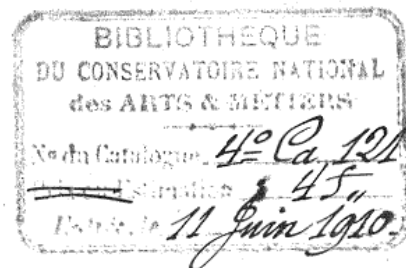 BIBLIOTHEQUE
DU CONSERVATOIRE NATIONAL
des ARTS & METIERS
No du Catalogue 4º Ca 121
Estimation 45"
Entrée, le 11 Juin 1910.